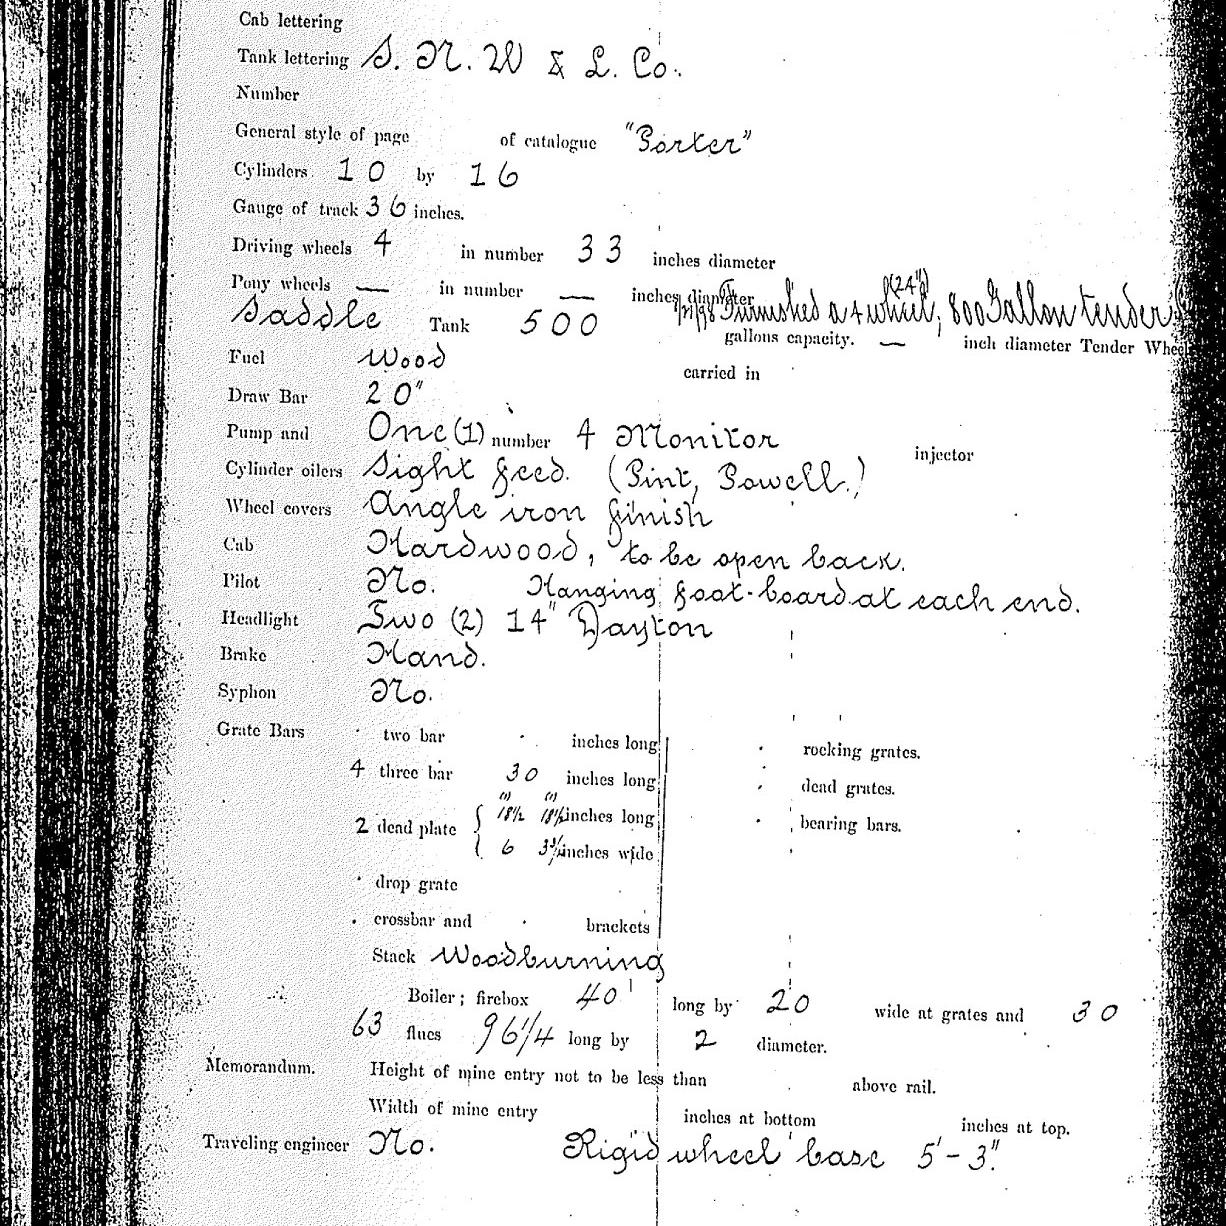 Cab lettering
Tank lettering S. N. W & L. Co.
Number
General style of page of catalogue "Porter"
Cylinders 10 by 16
Gauge of track 36 inches.
Driving wheels 4 in number 33 inches diameter
Pony wheels — in number — inches diameter
(24")
Furnished a 4 wheel, 800 Gallon tender
Saddle Tank 500 gallons capacity. — inch diameter Tender Wheel
Fuel Wood carried in
Draw Bar 20"
Pump and One (1) number 4 Monitor injector
Cylinder oilers Sight feed. (Pint, Powell.)
Wheel covers Angle iron finish
Cab Hardwood, to be open back.
Pilot No. Hanging foot-board at each end.
Headlight Two (2) 14" Dayton
Brake Hand.
Syphon No.
Grate Bars two bar inches long rocking grates.
4 three bar 30 inches long dead grates.
(1) (1)
2 dead plate { 18½ 18½ inches long bearing bars.
6 3½ inches wide
drop grate
crossbar and brackets
Stack Woodburning
Boiler; firebox 40 long by 20 wide at grates and 30
63 flues 96¼ long by 2 diameter.
Memorandum. Height of mine entry not to be less than above rail.
Width of mine entry inches at bottom inches at top.
Traveling engineer No. Rigid wheel base 5'-3".